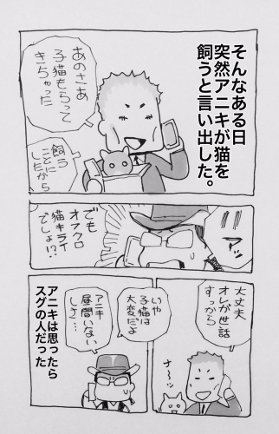 そんなある日
突然アニキが猫を
飼うと言い出した。
あのさあ
子猫もらって
きちゃった
飼う
ことに
したから
でも
猫キライ
でしょ!?
大丈夫
オレが世話
すっから
いや
子猫は
大変だよ
アニキ
昼間いない
しさ…
アニキは思ったら
スグの人だった